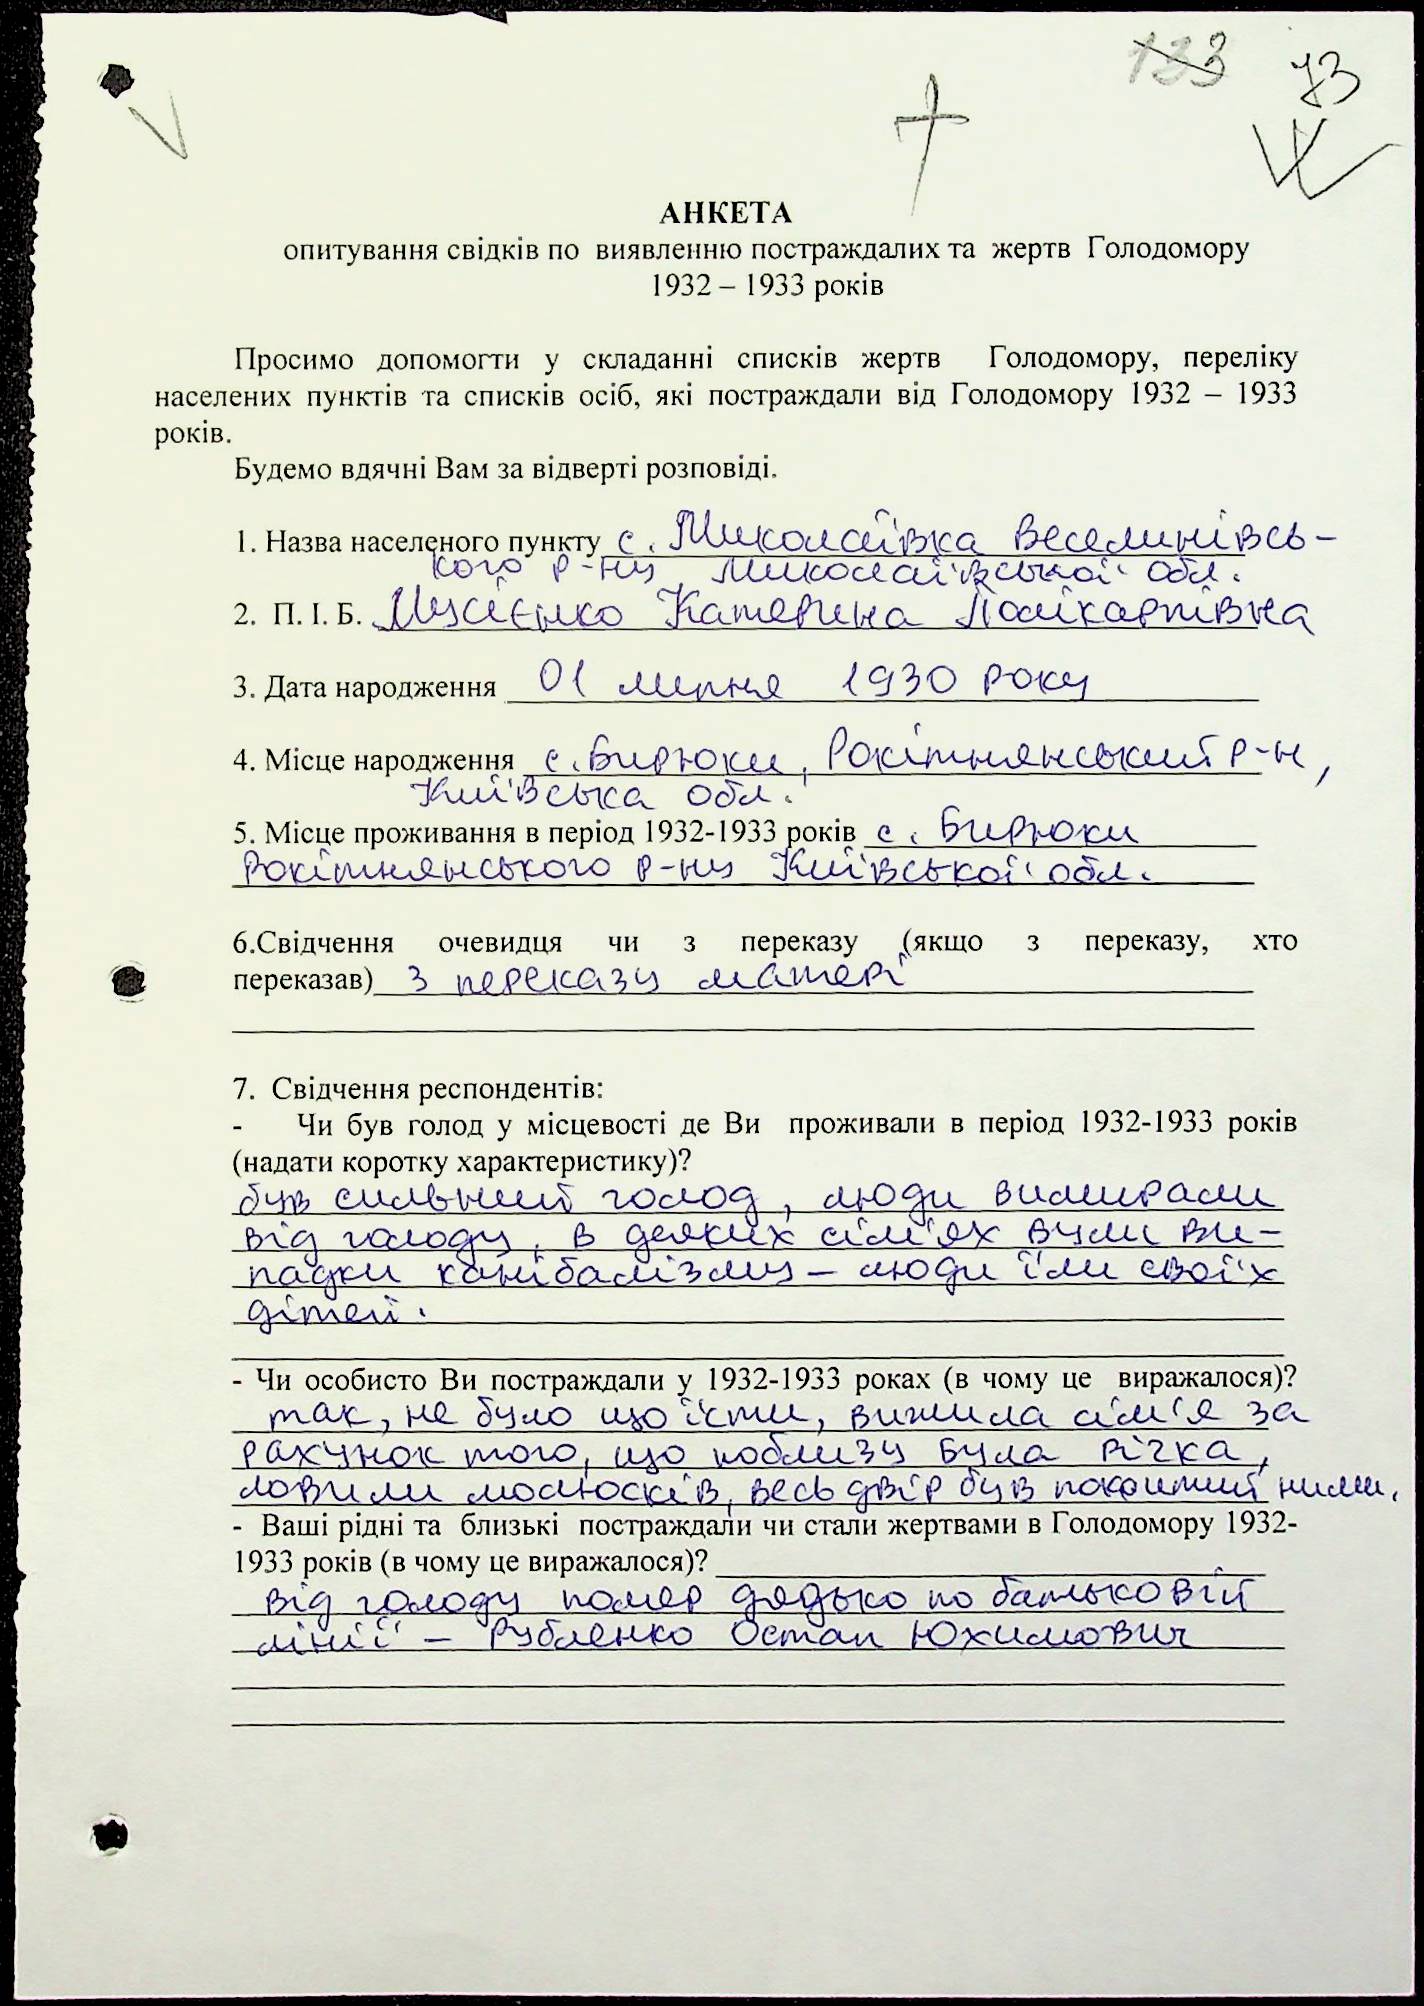 133 73
АНКЕТА
опитування свідків по виявленню постраждалих та жертв Голодомору
1932 – 1933 років
Просимо допомогти у складанні списків жертв Голодомору, переліку
населених пунктів та списків осіб, які постраждали від Голодомору 1932 – 1933
років.
Будемо вдячні Вам за відверті розповіді.
1. Назва населеного пункту с. Миколаївка Веселинівсь-
кого р-ну Миколаївської обл.
2. П. І. Б. Мусієнко Катерина Полікарпівна
3. Дата народження 01 липня 1930 року
4. Місце народження с. Бирюки, Рокітнянський р-н,
Київська обл.
5. Місце проживання в період 1932-1933 років с. Бирюки
Рокітнянського р-ну Київської обл.
6.Свідчення очевидця чи з переказу (якщо з переказу, хто
переказав) з переказу матері
7. Свідчення респондентів:
- Чи був голод у місцевості де Ви проживали в період 1932-1933 років
(надати коротку характеристику)?
був сильний голод, люди вимирали
від голоду, в деяких сім'ях вули ви-
падки канібалізму – люди їли своїх
дітей.
- Чи особисто Ви постраждали у 1932-1933 роках (в чому це виражалося)?
так, не було що їсти, вижила сім'я за
рахунок того, що поблизу була річка,
ловили молюсків, весь двір був покритий ними.
- Ваші рідні та близькі постраждали чи стали жертвами в Голодомору 1932-
1933 років (в чому це виражалося)?
від голоду помер дядько по батьковій
лінії – Рубленко Остап Юхимович